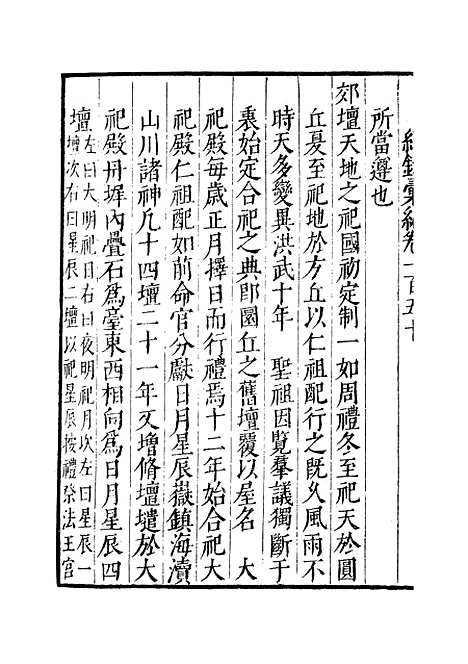 紀錄彙編卷一百五十
所當遵也
郊壇天地之祀國初定制一如周禮冬至祀天於圓
丘夏至祀地於方丘以仁祖配行之旣久風雨不
時天多變異洪武十年　聖祖因覧羣議獨斷于
裏始定合祀之典卽圜丘之舊壇覆以屋名　大
祀殿每歲正月擇日而行禮焉十二年始合祀大
祀殿仁祖配如前命官分獻日月星辰嶽鎮海瀆
山川諸神凡十四壇二十一年又增脩壇壝於大
祀殿丹墀內疊石爲臺東西相向爲日月星辰四
壇左曰大明祀日右曰夜明祀月次左曰星辰一
壇次右曰星辰二壇以祀星辰按禮祭法王宮